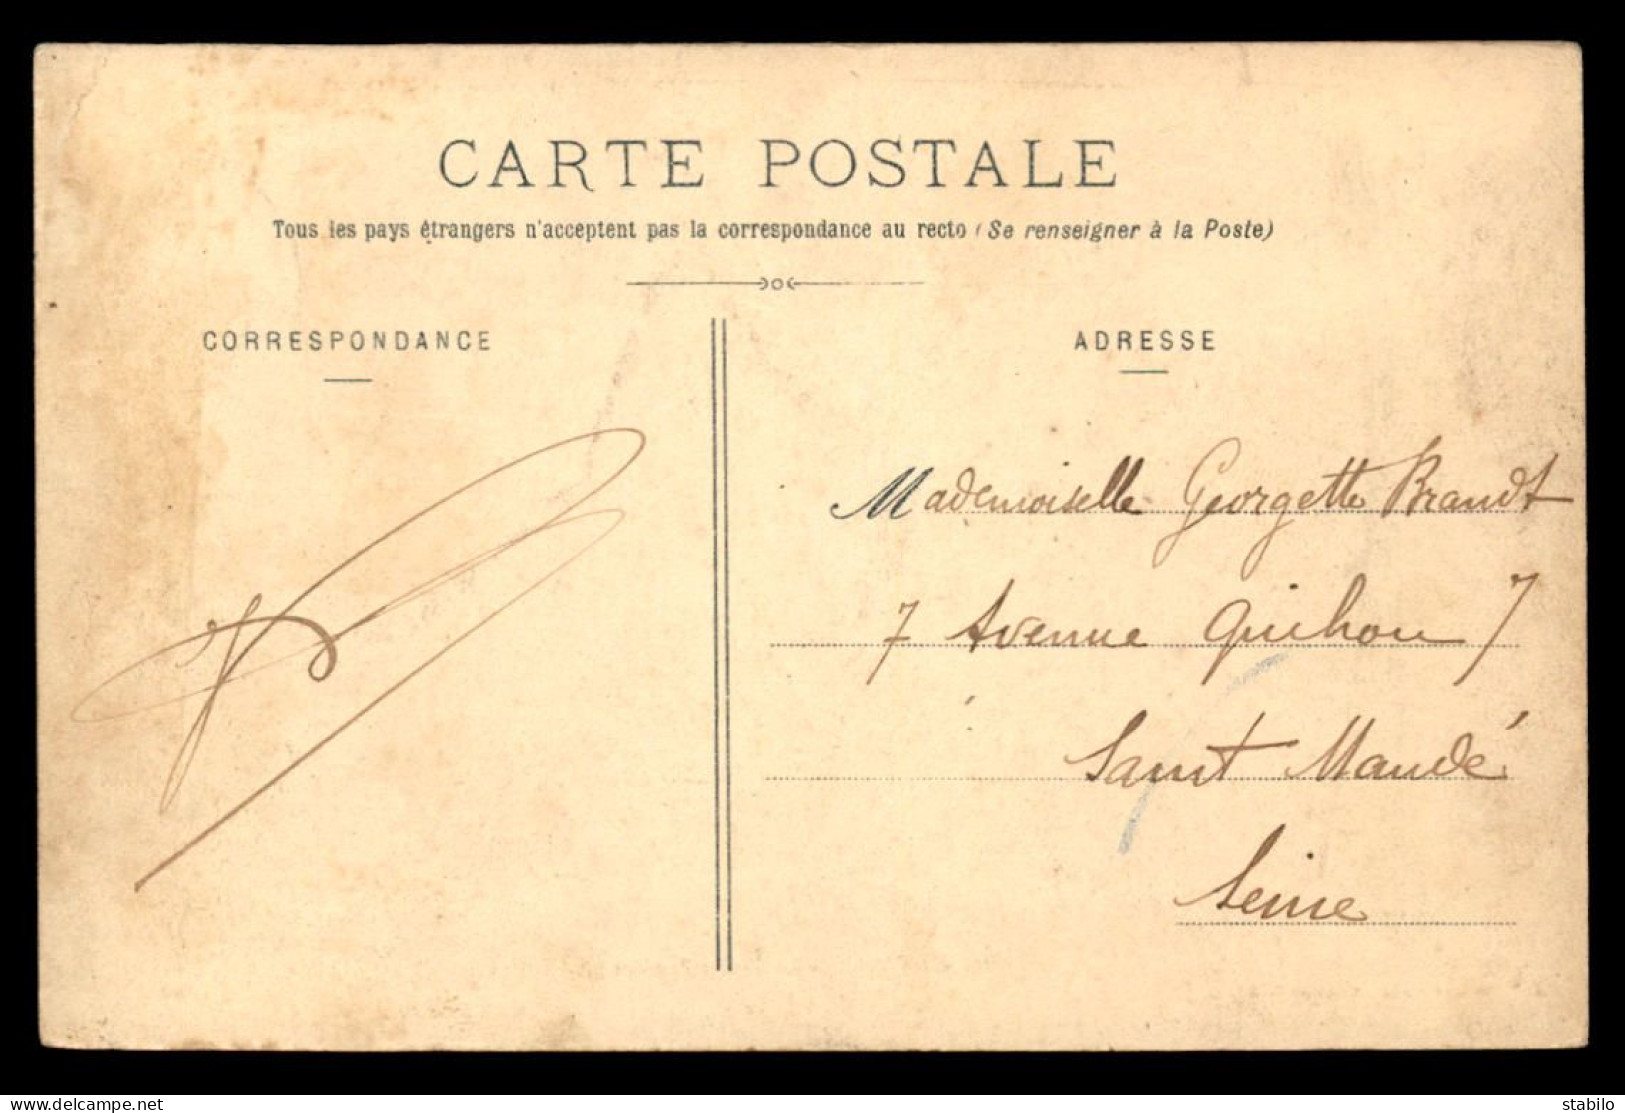 CARTE POSTALE
Tous les pays étrangers n'acceptent pas la correspondance au recto (Se renseigner à la Poste)
CORRESPONDANCE
ADRESSE
Mademoiselle Georgette Brandt
7 Avenue Quihou 7
Saint Mandé
Seine
www.delcampe.net
stabilo